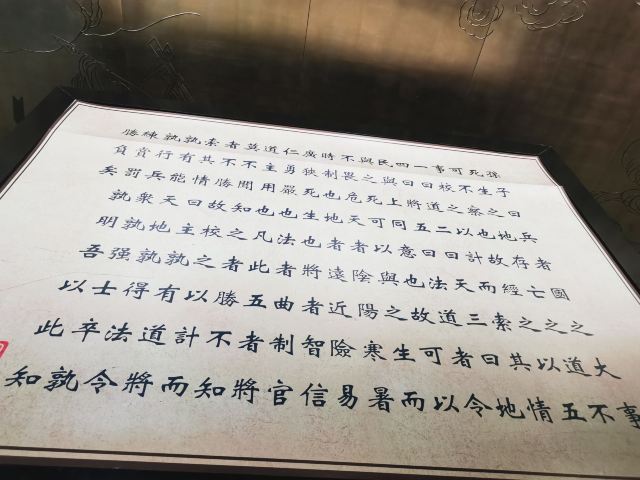 孫子曰兵者國之大事
死生之地存亡之道不
可不察也故經之以五
事校之以計而索其情
一曰道二曰天三曰地
四曰將五曰法道者令
民與上同意也故可以
與之死可以與之生而
不畏危天者陰陽寒暑
時制也地者遠近險易
廣狹死生也將者智信
仁勇嚴也法者曲制官
道主用也凡此五者將
莫不聞知之者勝不知
者不勝故校之以計而
索其情曰主孰有道將
孰有能天地孰得法令
孰行兵衆孰强士卒孰
練賞罰孰明吾以此知
勝負矣